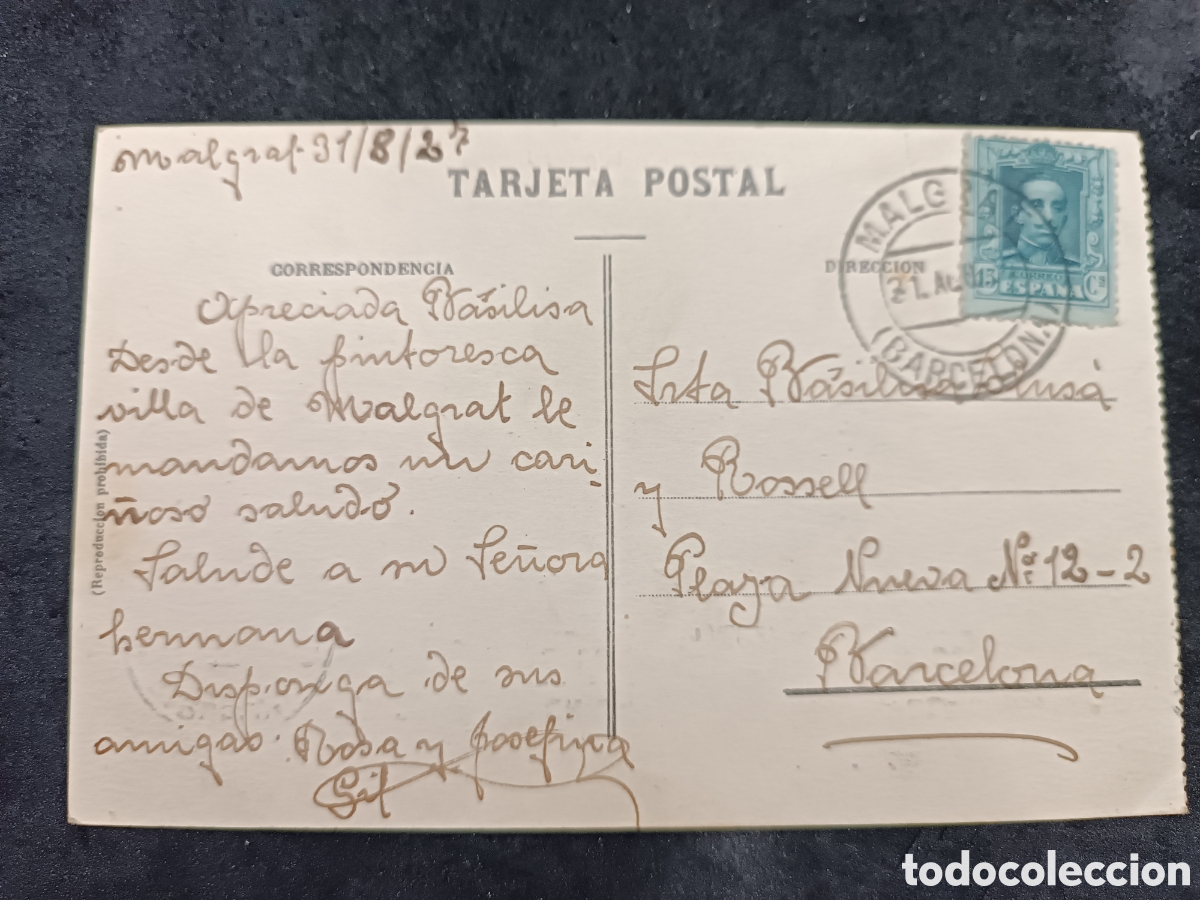 Malgrat 31/8/27
TARJETA POSTAL
CORRESPONDENCIA
Apreciada Básilisa
Desde la pintoresca
villa de Malgrat le
mandamos un cari-
ñoso saludo.
Salude a su Señora
hermana
Disponga de sus
amigas. Rosa y Josefina
Gil
(Reproducción prohibida)
DIRECCION
MALG
31 AG
(BARCELONA)
15 CORREOS Cs
ESPAÑA
Srta Básilisa
y Rossell
Plaza Nueva Nº 12-2
Barcelona
todocoleccion